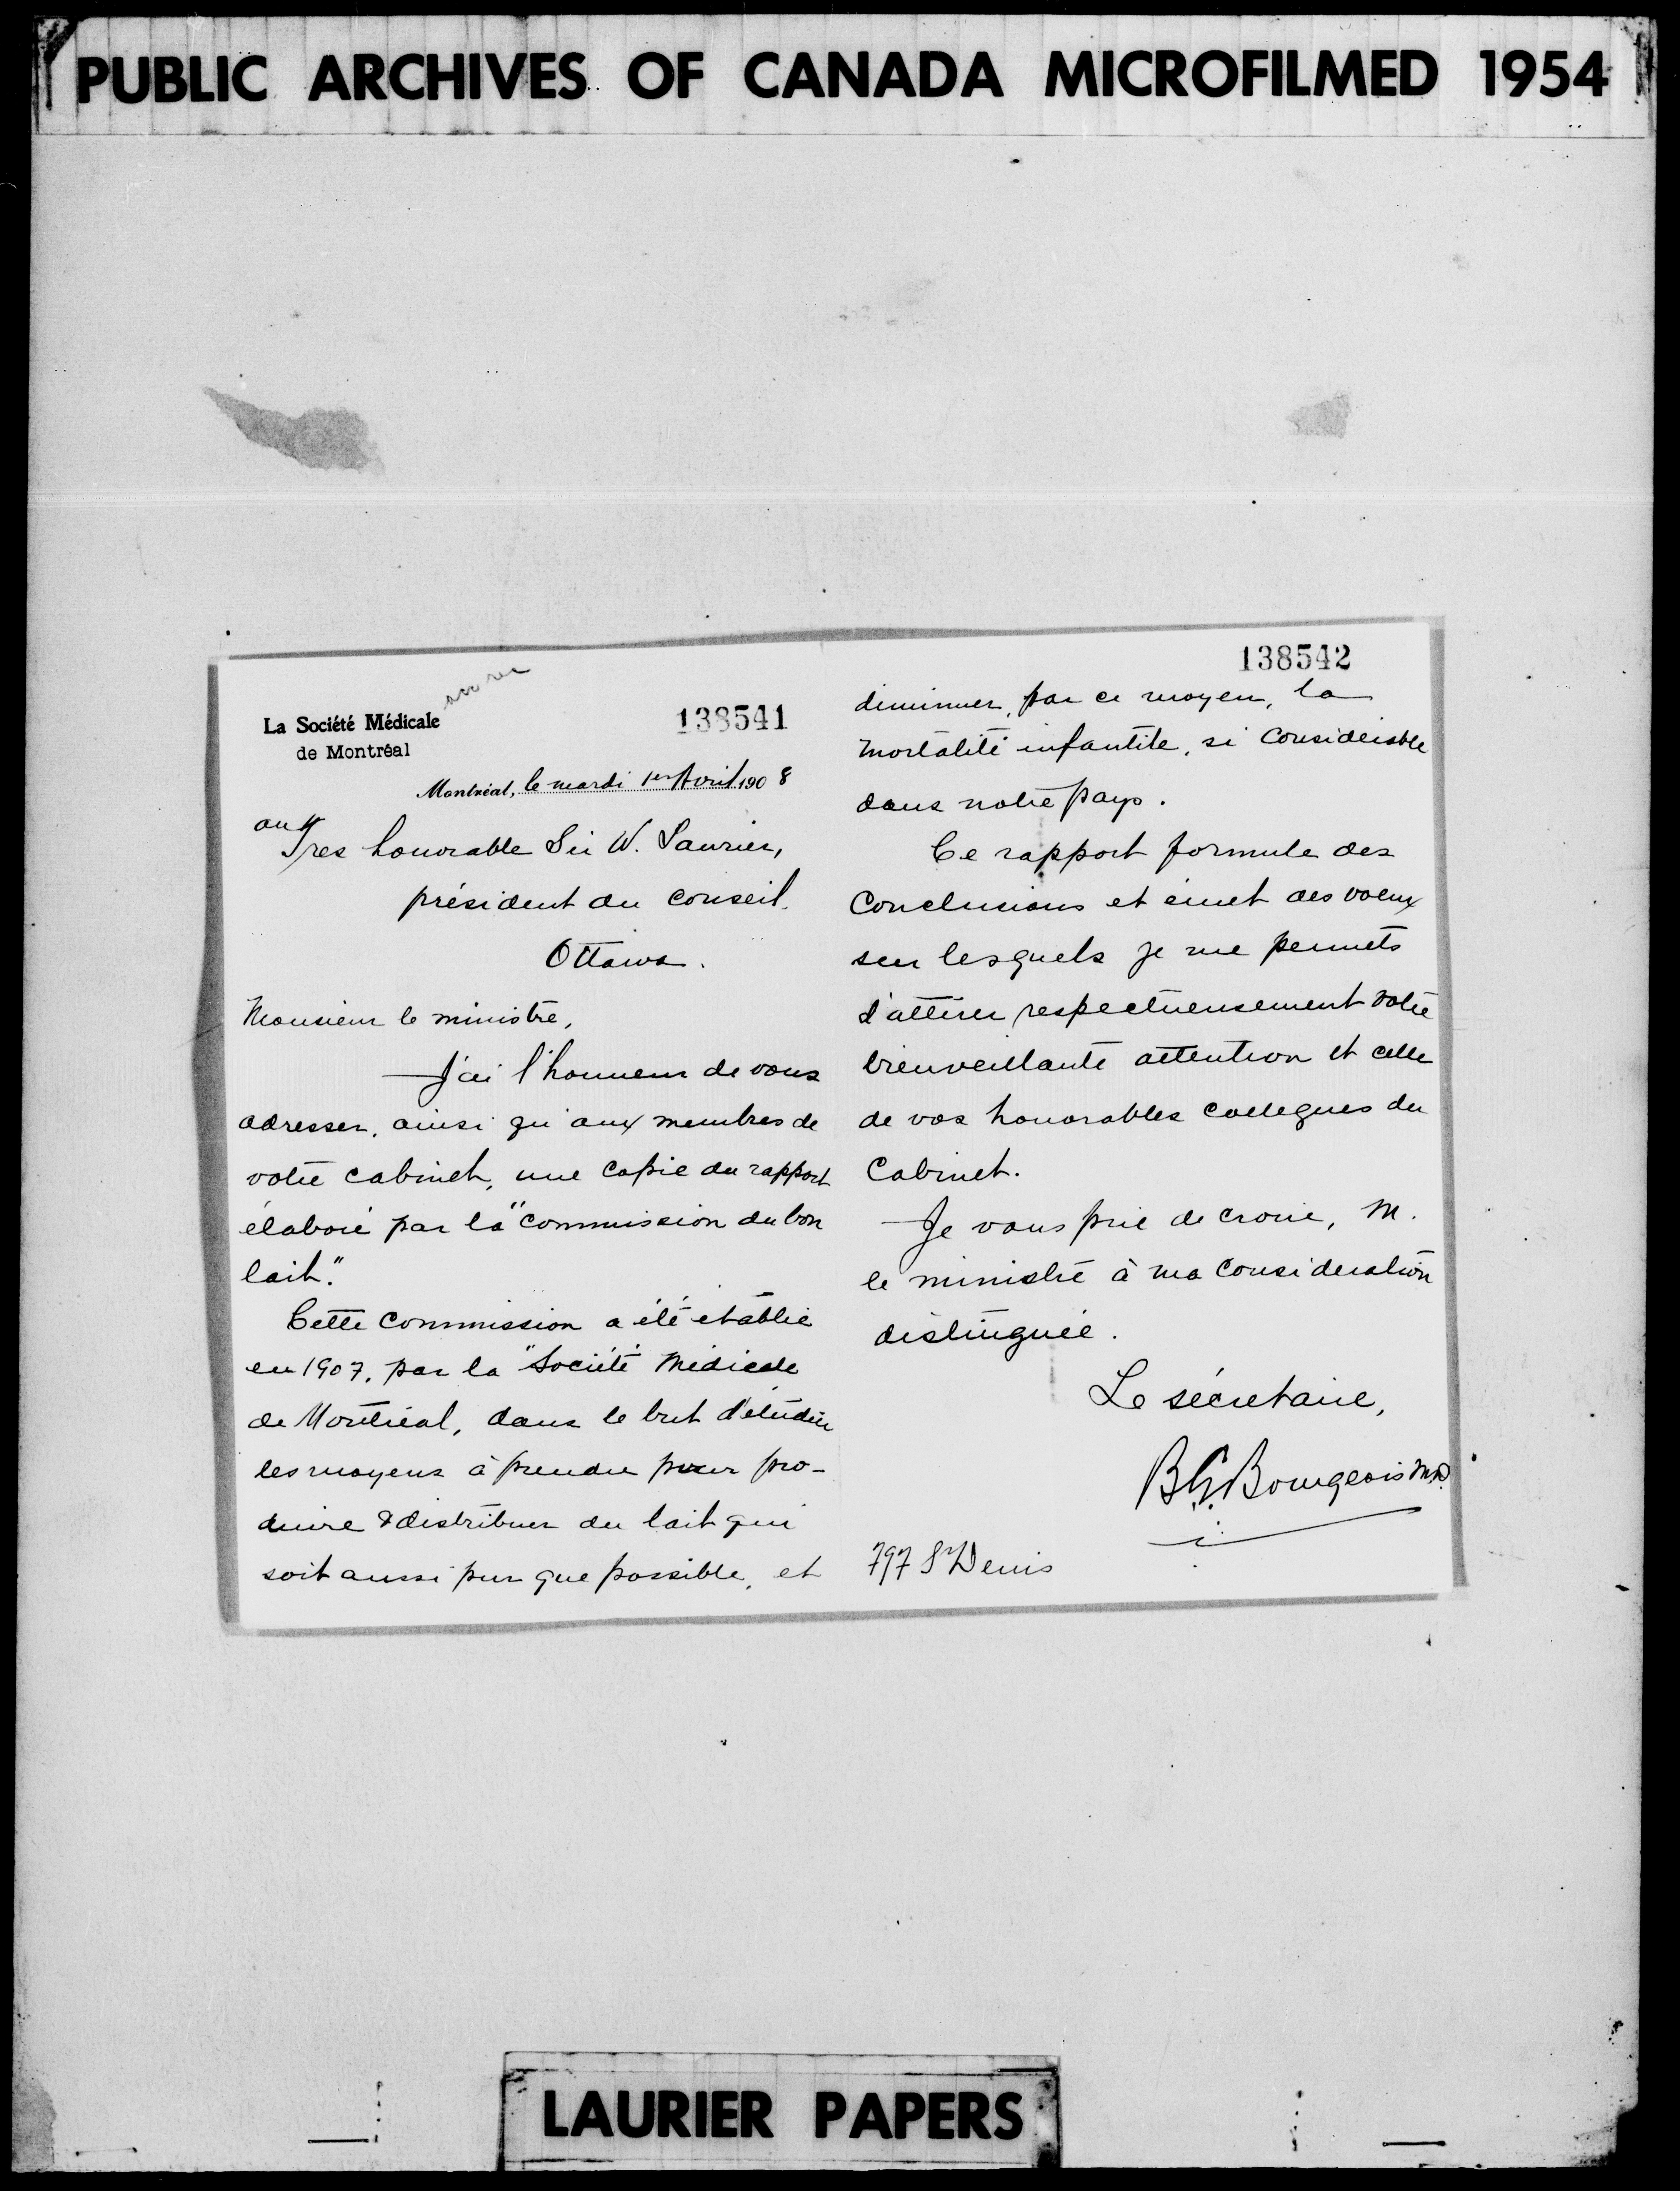 PUBLIC ARCHIVES OF CANADA MICROFILMED 1954
La Société Médicale
de Montréal
138541
Montréal, le mardi 1er Avril 1908
au
Tres honorable Sir W. Laurier,
président du conseil.
Ottawa.
Monsieur le ministre,
J'ai l'honneur de vous
adresser, ainsi qu'aux membres de
votre cabinet, une copie du rapport
élaboré par la "commission du bon
lait."
Cette commission a été établie
en 1907, par la "Société Médicale
de Montréal, dans le but d'étudier
les moyens à prendre pour pro-
duire & distribuer du lait qui
soit aussi pur que possible, et
138542
diminuer, par ce moyen, la
mortalité infantile, si considerable
dans notre pays.
Ce rapport formule des
conclusions et émet des voeux
sur lesquels je me permets
d'attirer respectueusement votre
bienveillante attention et celle
de vos honorables collegues du
Cabinet.
Je vous prie de croire, M.
le ministre à ma consideration
distinguée.
Le sécretaire,
B.G. Bourgeois M.D.
797 St Denis
LAURIER PAPERS